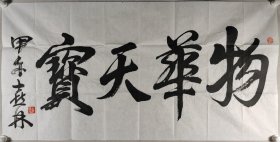 物華天寶
甲午